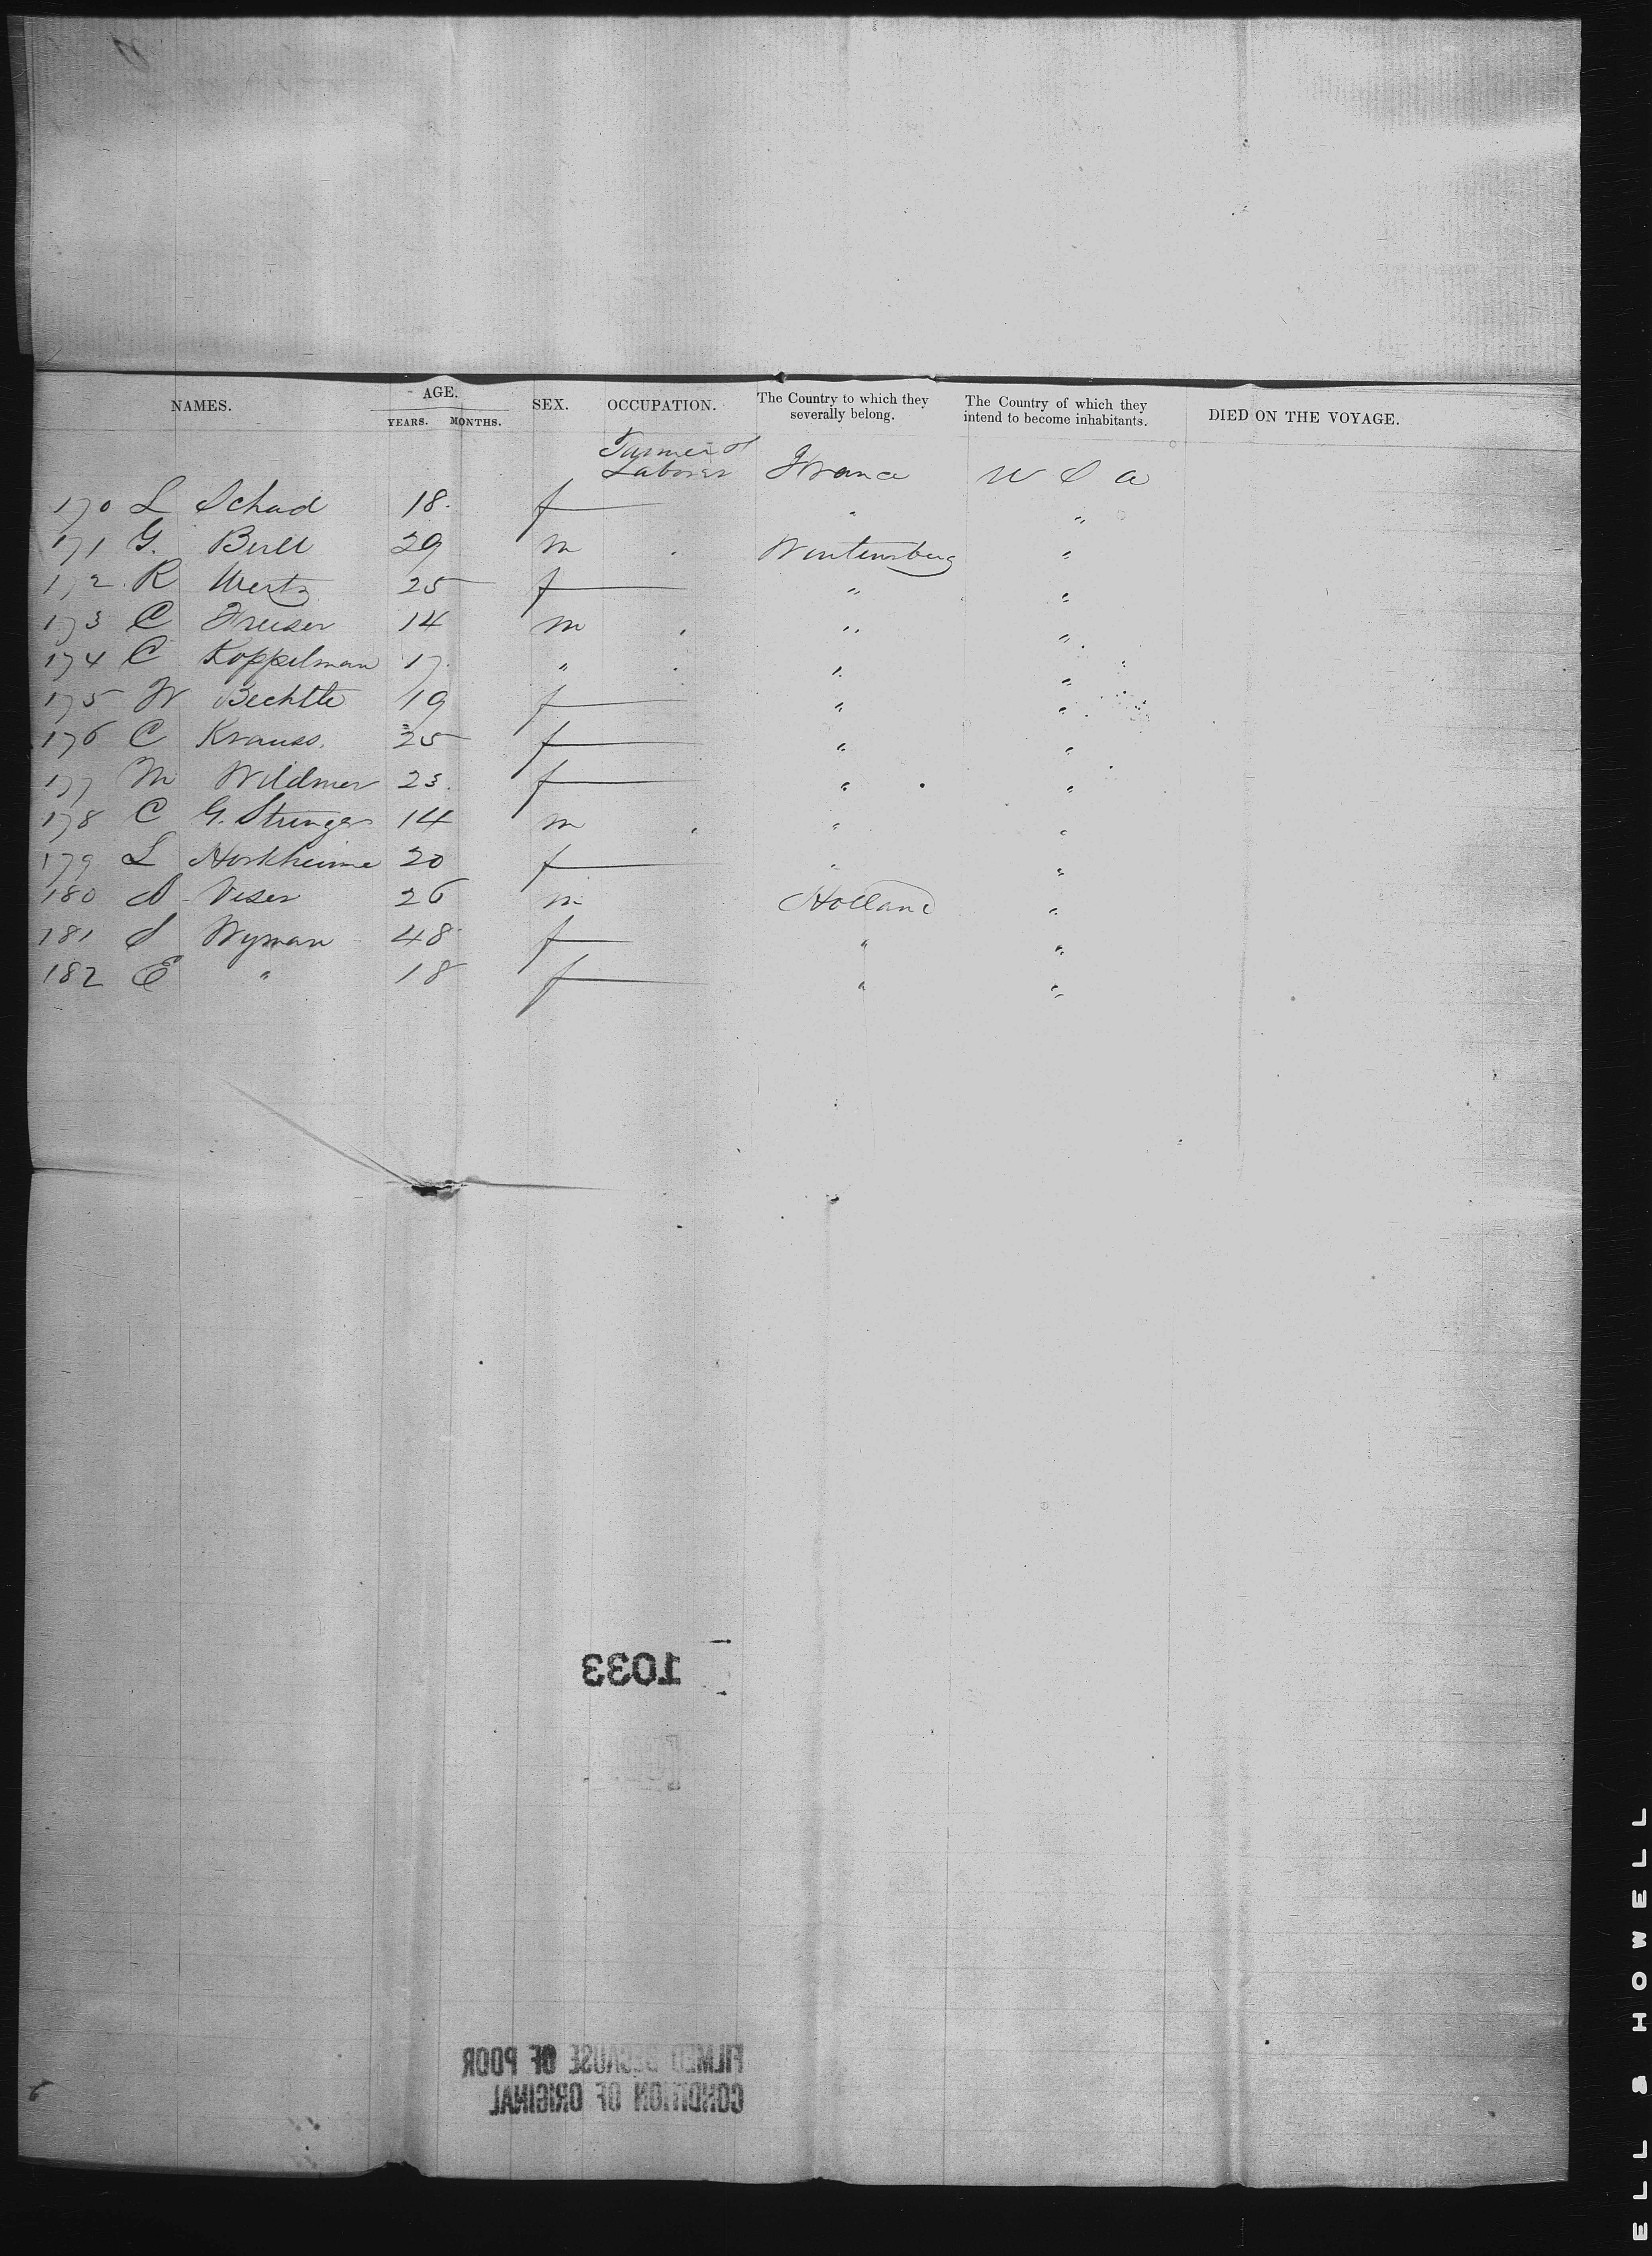 NAMES. AGE. SEX. OCCUPATION. The Country to which they severally belong. The Country of which they intend to become inhabitants. DIED ON THE VOYAGE.
YEARS. MONTHS.
Farmer or
Laborer France U S A
170 L Schad 18. f " "
171 G. Bull 29 m Wurtemberg "
172 R Wertz 25 f " "
173 C Freiser 14 m " "
174 C Koppelman 17 " " "
175 W Bechtle 19 f " "
176 C Krauss. 25 f " "
177 M Wildmer 23. f " "
178 C G. Strenger 14 m " "
179 L Horkheime 20 f " "
180 Veser 26 m Holland "
181 S Wyman 48 f " "
182 E " 18 f " "
1033
FILMED BECAUSE OF POOR
CONDITION OF ORIGINAL
ELL & HOWELL